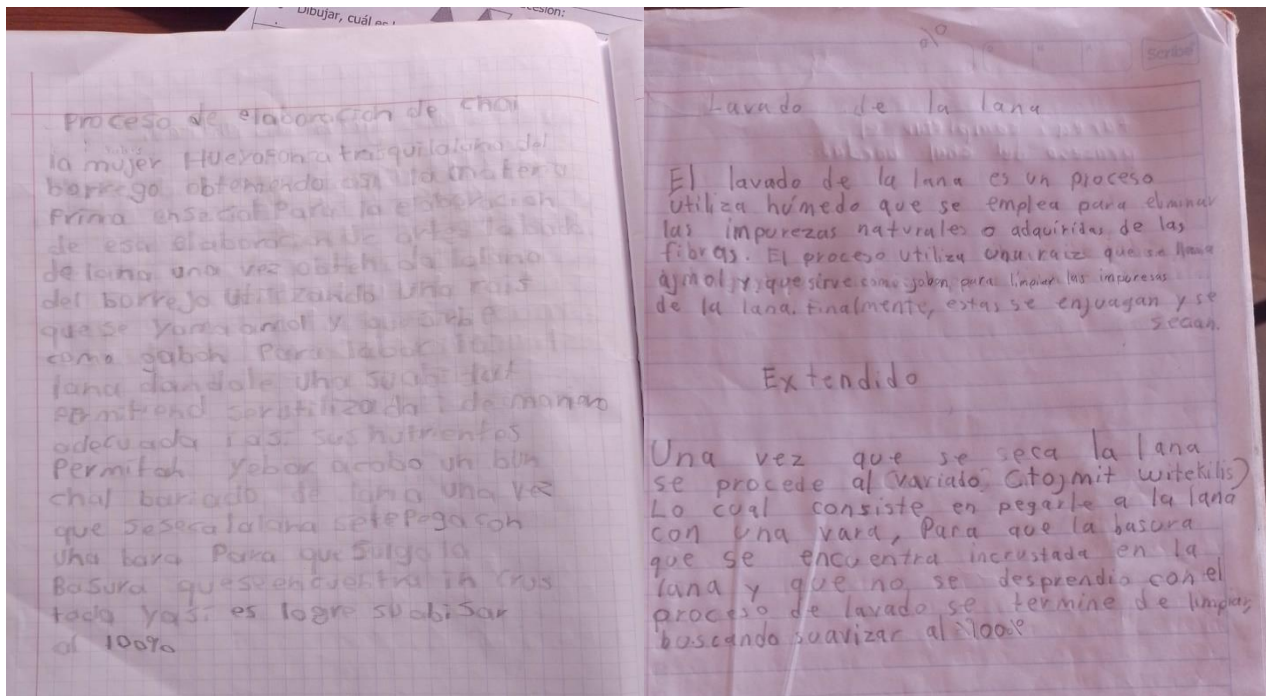 Dibujar, cuál es
Proceso de elaboracion de chal
la mujer Hueyapan a trasquila lana del
borrego obteniendo asi la materia
Prima ensecial Para la elaboracion
de esa elaboracion de
de lana una vez obtenida la lana
del borrego utilizando una rais
que se yama amol y qu sirbe
como gabon Para labar
lana dandole una suabidat
ser utilizada de manero
adecuada i asi sus nutrientes
Permitan yebar acabo un buen
chal bariado de lana una vez
que se seca la lana se te pega con
una bara Para que sulga la
Basura que se encuentra in crus
tada yasi es logre suabisar
al 100%
Scribe
Lavado de la lana
El lavado de la lana es un proceso
utiliza húmedo que se emplea para eliminar
las impurezas naturales o adquiridas de las
fibras. El proceso utiliza una raiz que se llama
amol y que sirve como jabon para limpiar las impuresas
de la lana. Finalmente, estas se enjuagan y se
secan.
Extendido
Una vez que se seca la lana
se procede al variado (tojmit witekilis)
Lo cual consiste en pegarle a la lana
con una vara, Para que la basura
que se encuentra incrustada en la
lana y que no se desprendio con el
proceso de lavado se termine de limpiar,
buscando suavizar al 100%